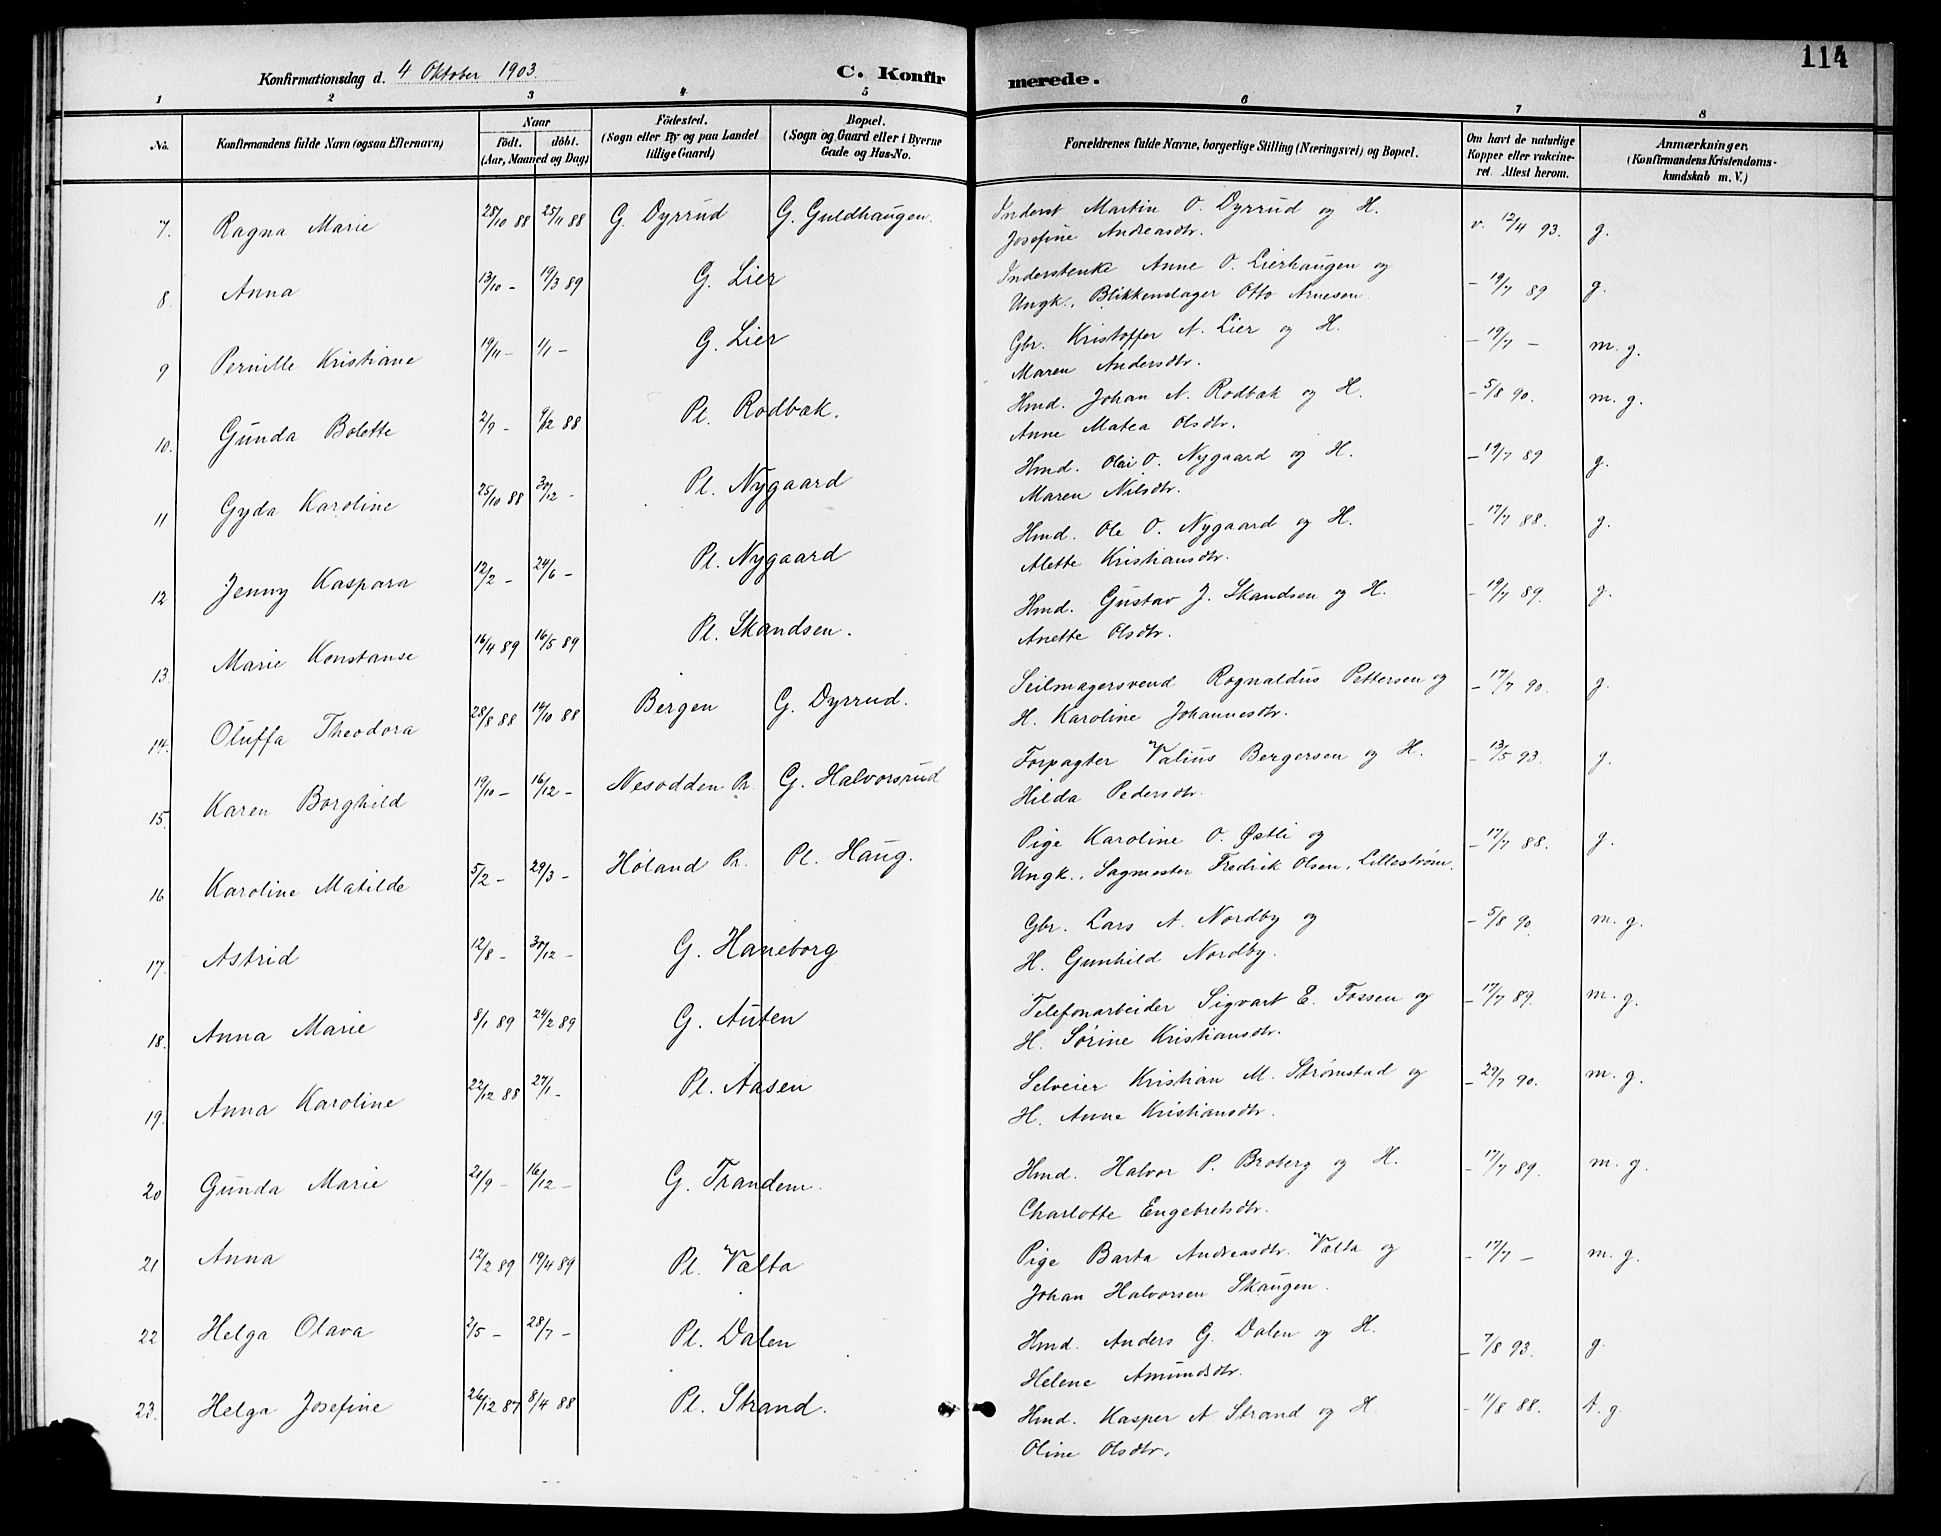 114
Konfirmationsdag d. 4 Oktober 1903.
C. Konfirmerede.
1 2 3 4 5 6 7 8
No. Konfirmandens fulde Navn (ogsaa Efternavn) Naar født. døbt. (Aar, Maaned og Dag) Fødested. (Sogn eller By og paa Landet tillige Gaard) Bopæl. (Sogn og Gaard eller i Byerne Gade og Hus-No. Forældrenes fulde Navne, borgerlige Stilling (Næringsvei) og Bopæl. Om havt de naturlige Kopper eller vakcineret. Attest herom. Anmærkninger. (Konfirmandens Kristendomskundskab m. V.)
7. Ragna Marie 28/10 88 25/11 88 G. Dyrrud G. Guldhaugen. Inderst Martin O. Dyrrud og H. v. 12/4 93. g.
Josefine Andreasdtr.
8. Anna 13/10 - 19/3 89 G. Lier Inderstenke Anne O. Lierhaugen og - 19/7 89 g.
Ungk. Blikkenslager Otto Arnesen.
9 Pernille Kristiane 19/11 - 1/1 - G. Lier Gbr. Kristoffer A. Lier og H. - 19/7 - m. g.
Maren Andersdtr.
10. Gunda Bolette 2/9 - 9/12 88 Pl. Rodbak. Hmd. Johan N. Rodbak og H. - 5/8 90. m. g.
Anne Matea Olsdtr.
11 Gyda Karoline 25/10 88 30/12 - Pl. Nygaard Hmd. Olai O. Nygaard og H. - 19/7 89 g.
Maren Nilsdtr.
12 Jenny Kaspara 12/2 - 24/6 - Pl. Nygaard Hmd. Ole O. Nygaard og H. - 17/7 88. g.
Alette Kristiansdtr.
13. Marie Konstanse 16/4 89 16/5 89 Pl. Skandsen. Hmd. Gustav J. Skandsen og H. - 19/7 89. g.
Anette Olsdtr.
14. Oluffa Theodora 28/8 88 14/10 88 Bergen G. Dyrrud. Seilmagersvend Rognaldus Pettersen og - 17/7 90. g.
H. Karoline Johannesdtr.
15. Karen Borghild 19/10 - 16/12 - Nesodden Pr. G. Halvorsrud Forpagter Valius Bergersen og H. - 13/5 93. g.
Hilda Pedersdtr.
16 Karoline Matilde 5/2 - 29/3 - Høland Pr. Pl. Haug. Pige Karoline O. Østli og - 17/7 88. g.
Ungk. Sagmester Fredrik Olsen, Lillestrøm.
17. Astrid 12/8 - 30/12 - G. Haneborg Gbr. Lars A. Nordby og - 5/8 90. m. g.
H. Gunhild Nordby.
18. Anna Marie 8/1 89 24/2 89 G. Auten Telefonarbeider Sigvart E. Fossen og - 17/7 89. m. g.
H. Sørine Kristiansdtr.
19. Anna Karoline 22/12 88 27/1 - Pl. Aasen Selveier Kristian M. Strømstad og - 29/7 90. m. g.
H. Anne Kristiansdtr.
20 Gunda Marie 21/9 - 16/12 - G. Trandem. Hmd. Halvor P. Broberg og H. - 17/7 89. m. g.
Charlotte Engebretsdtr.
21 Anna 12/2 89 19/4 89 Pl. Vælta Pige Barta Andreasdtr. Vælta og - 17/7 - m. g.
Johan Halvorsen Skaugen.
22 Helga Olava 2/5 - 28/7 - Pl. Dalen Hmd. Anders G. Dalen og H. - 7/8 93. g.
Helene Amundsdtr.
23. Helga Josefine 26/12 87 8/4 88 Pl. Strand. Hmd. Kasper A. Strand og H. - 11/8 88. t. g.
Oline Olsdtr.